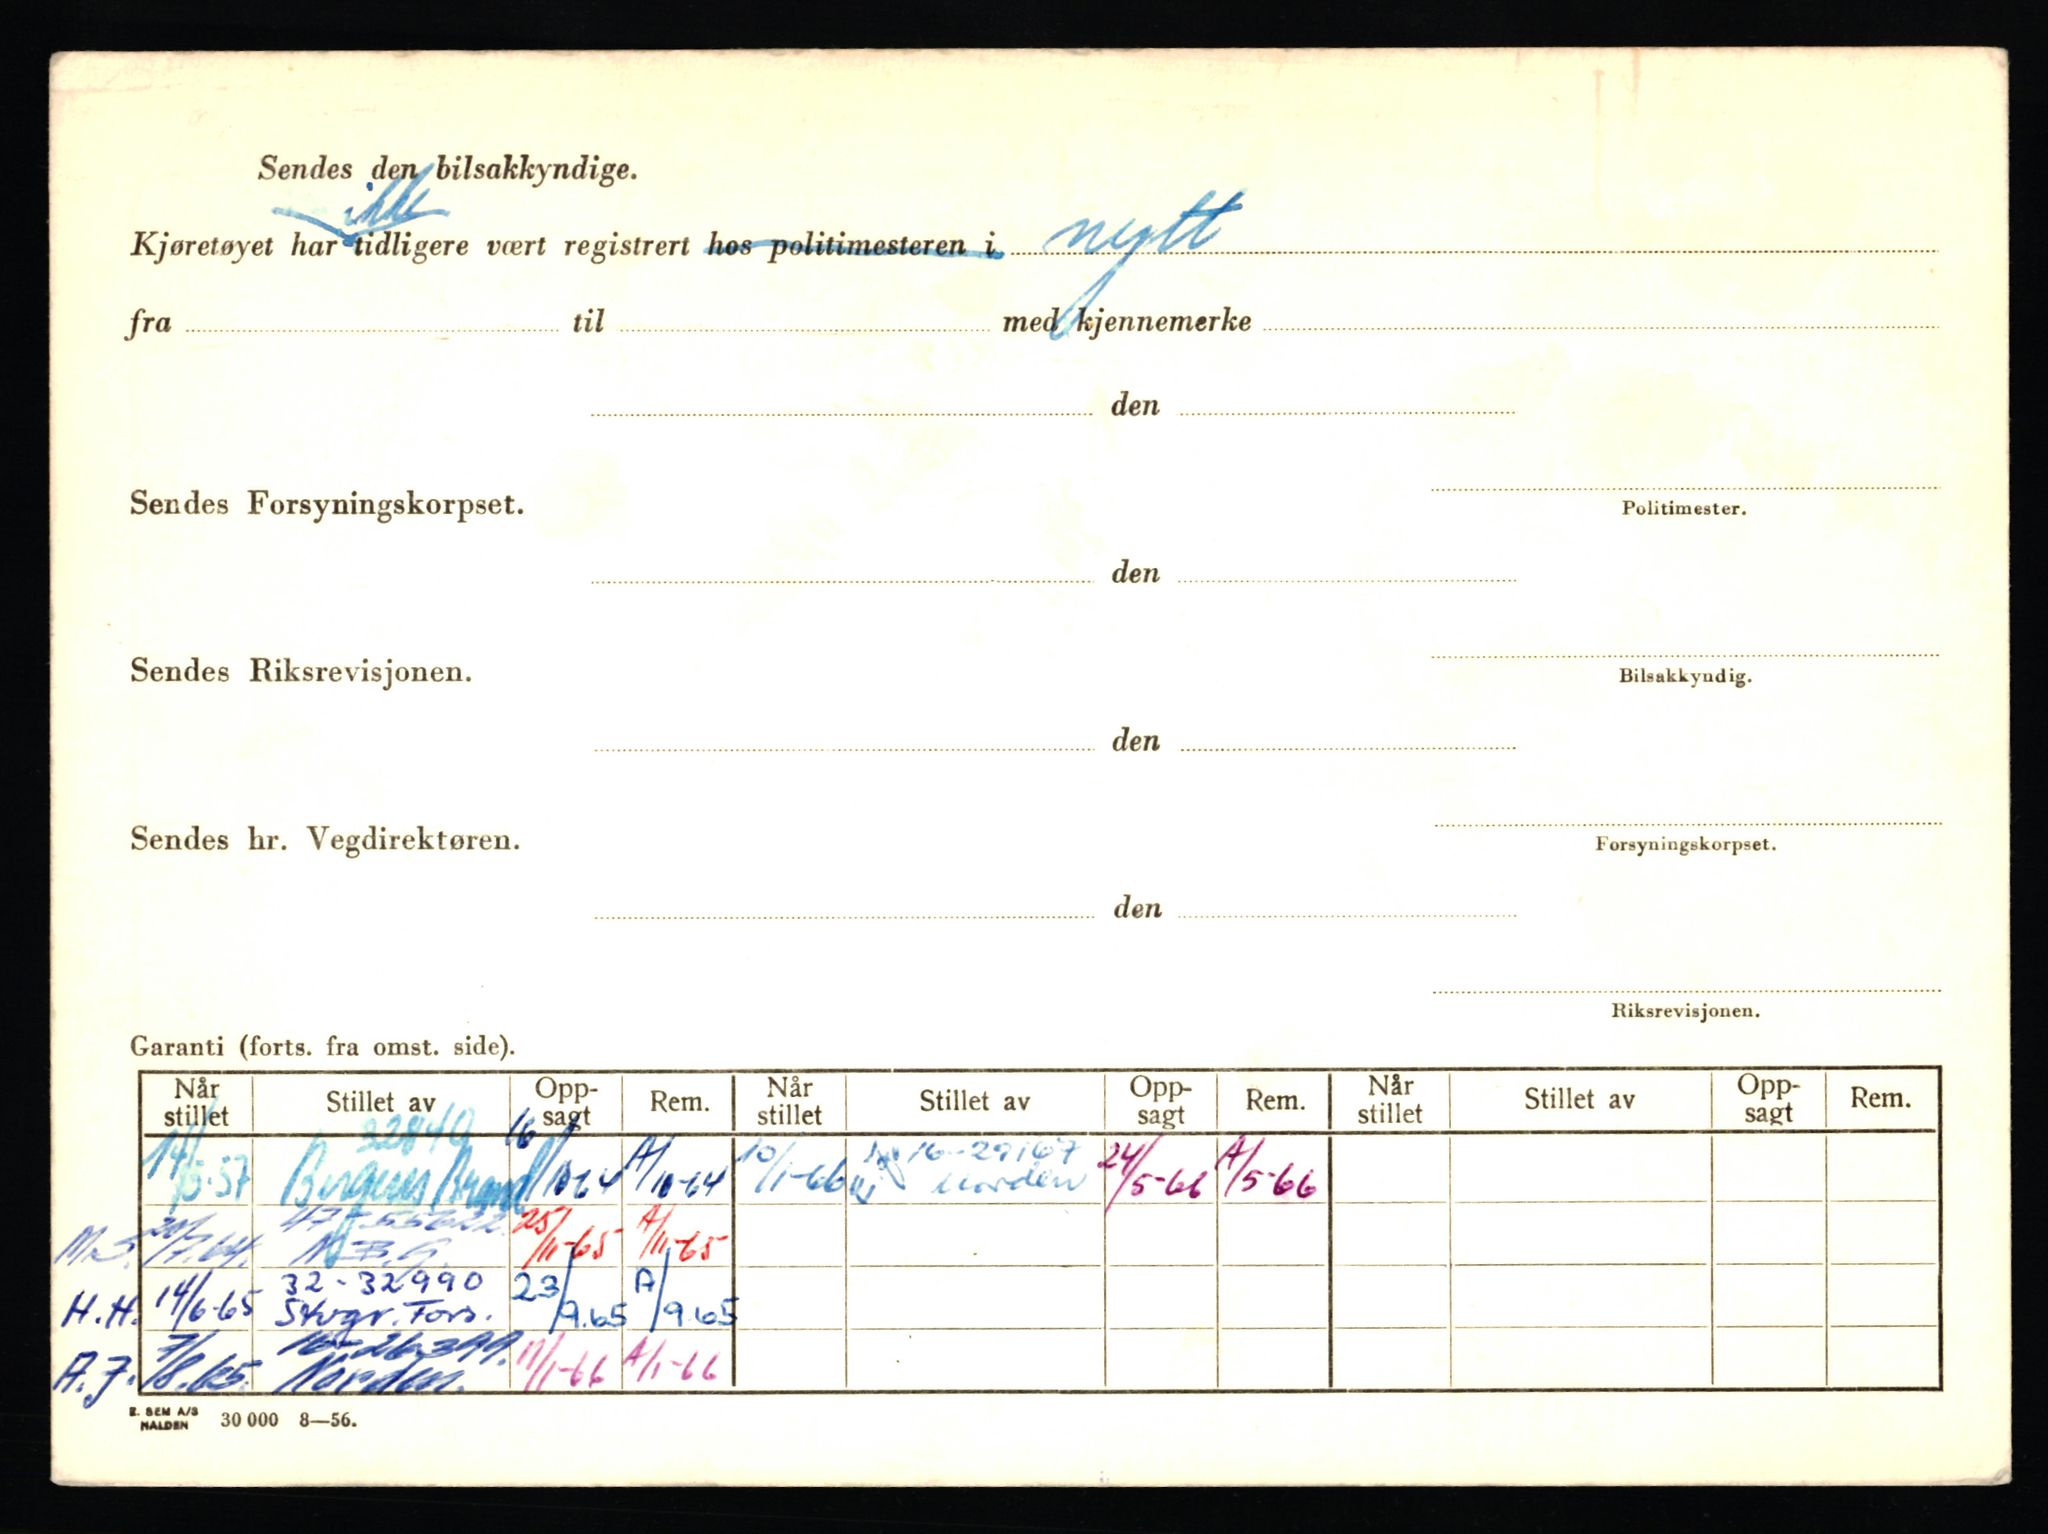 Sendes den bilsakkyndige.
ikke
Kjøretøyet har tidligere vært registrert hos politimesteren i nytt
fra til med kjennemerke
den
Sendes Forsyningskorpset.
Politimester.
den
Sendes Riksrevisjonen.
Bilsakkyndig.
den
Sendes hr. Vegdirektøren.
Forsyningskorpset.
den
Riksrevisjonen.
Garanti (forts. fra omst. side).
Når stillet Stillet av Opp-sagt Rem. Når stillet Stillet av Opp-sagt Rem. Når stillet Stillet av Opp-sagt Rem.
32849
14/5-57 Bergens Brand 16/10-64 A/10-64 10/1-66 16-29167 Norden 24/5-66 A/5-66
25/11-65 A/11-65
H.H. 14/6-65 32-32990 Stvgr. Fors. 23/9.65 A/9.65
A.J. 7/8.65. 16-26399. Norden. 11/1-66 A/1-66
E. SEM A/S
HALDEN 30 000 8—56.